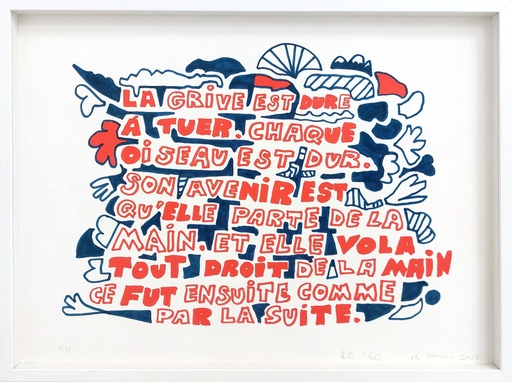 LA GRIVE EST DURE
À TUER. CHAQUE
OISEAU EST DUR.
SON AVENIR EST
QU'ELLE PARTE DE LA
MAIN. ET ELLE VOLA
TOUT DROIT DE LA MAIN
CE FUT ENSUITE COMME
PAR LA SUITE.